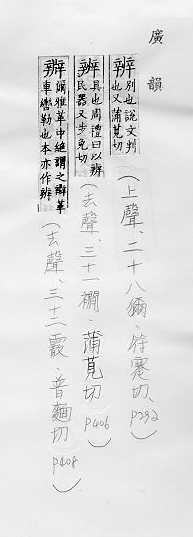 廣韻
辧 別也說文判
也又蒲莧切
(上聲、二十八獮、符蹇切、P292)
辨 具也周禮曰以辨
民器又步免切
(去聲、三十一襉、蒲莧切 P406)
辧 爾雅革中絕謂之辧革
車轡勒也本亦作辨
(去聲、三十二霰、普麵切 P408)